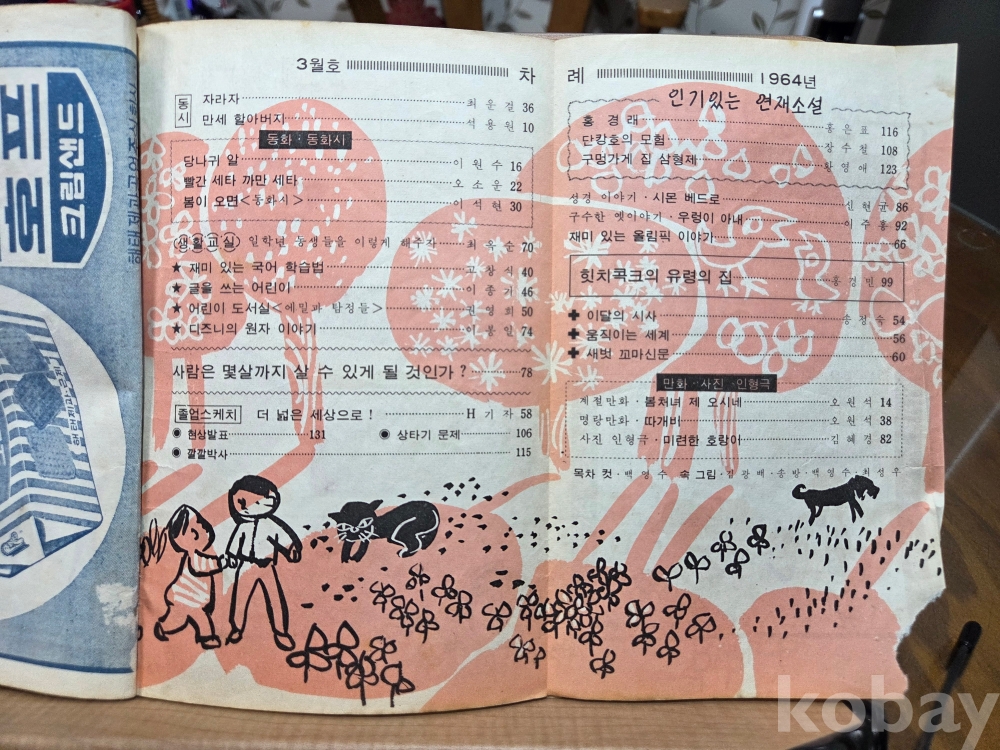 3월호 차
동시
자라자 최운걸 36
만세 할아버지 석용원 10
동화·동화시
당나귀 알 이원수 16
빨간 세타 까만 세타 오소운 22
봄이 오면<동화시> 이석현 30
생활교실 일학년 동생들을 이렇게 해주자 최옥순 70
★ 재미 있는 국어 학습법 고창식 40
★ 글을 쓰는 어린이 이종거 46
★ 어린이 도서실<에밀과 탐정들> 권영희 50
★ 디즈니의 원자 이야기 이봉일 74
사람은 몇살까지 살 수 있게 될 것인가? 78
졸업스케치 더 넓은 세상으로! H기자 58
◉ 현상발표 131 ◉ 상타기 문제 106
◉ 깔깔박사 115
례 1964년
인기있는 연재소설
홍경래 홍은표 116
단캉호의 모험 장수철 108
구멍가게 집 삼형제 황영애 123
성경 이야기·시몬 베드로 신현균 86
구수한 옛이야기·우렁이 아내 이주홍 92
재미 있는 올림픽 이야기 66
힛치콕크의 유령의 집 홍경민 99
✚ 이달의 시사 송정숙 54
✚ 움직이는 세계 56
✚ 새벗 꼬마신문 60
만화·사진·인형극
계절만화·봄처녀 제 오시네 오원석 14
명랑만화·따개비 오원석 38
사진 인형극·미련한 호랑이 김혜경 82
목차 컷·백영수, 속 그림·김광배·송방·백영수·최성우
크림샌드
해태제과공업주식회사
kobay